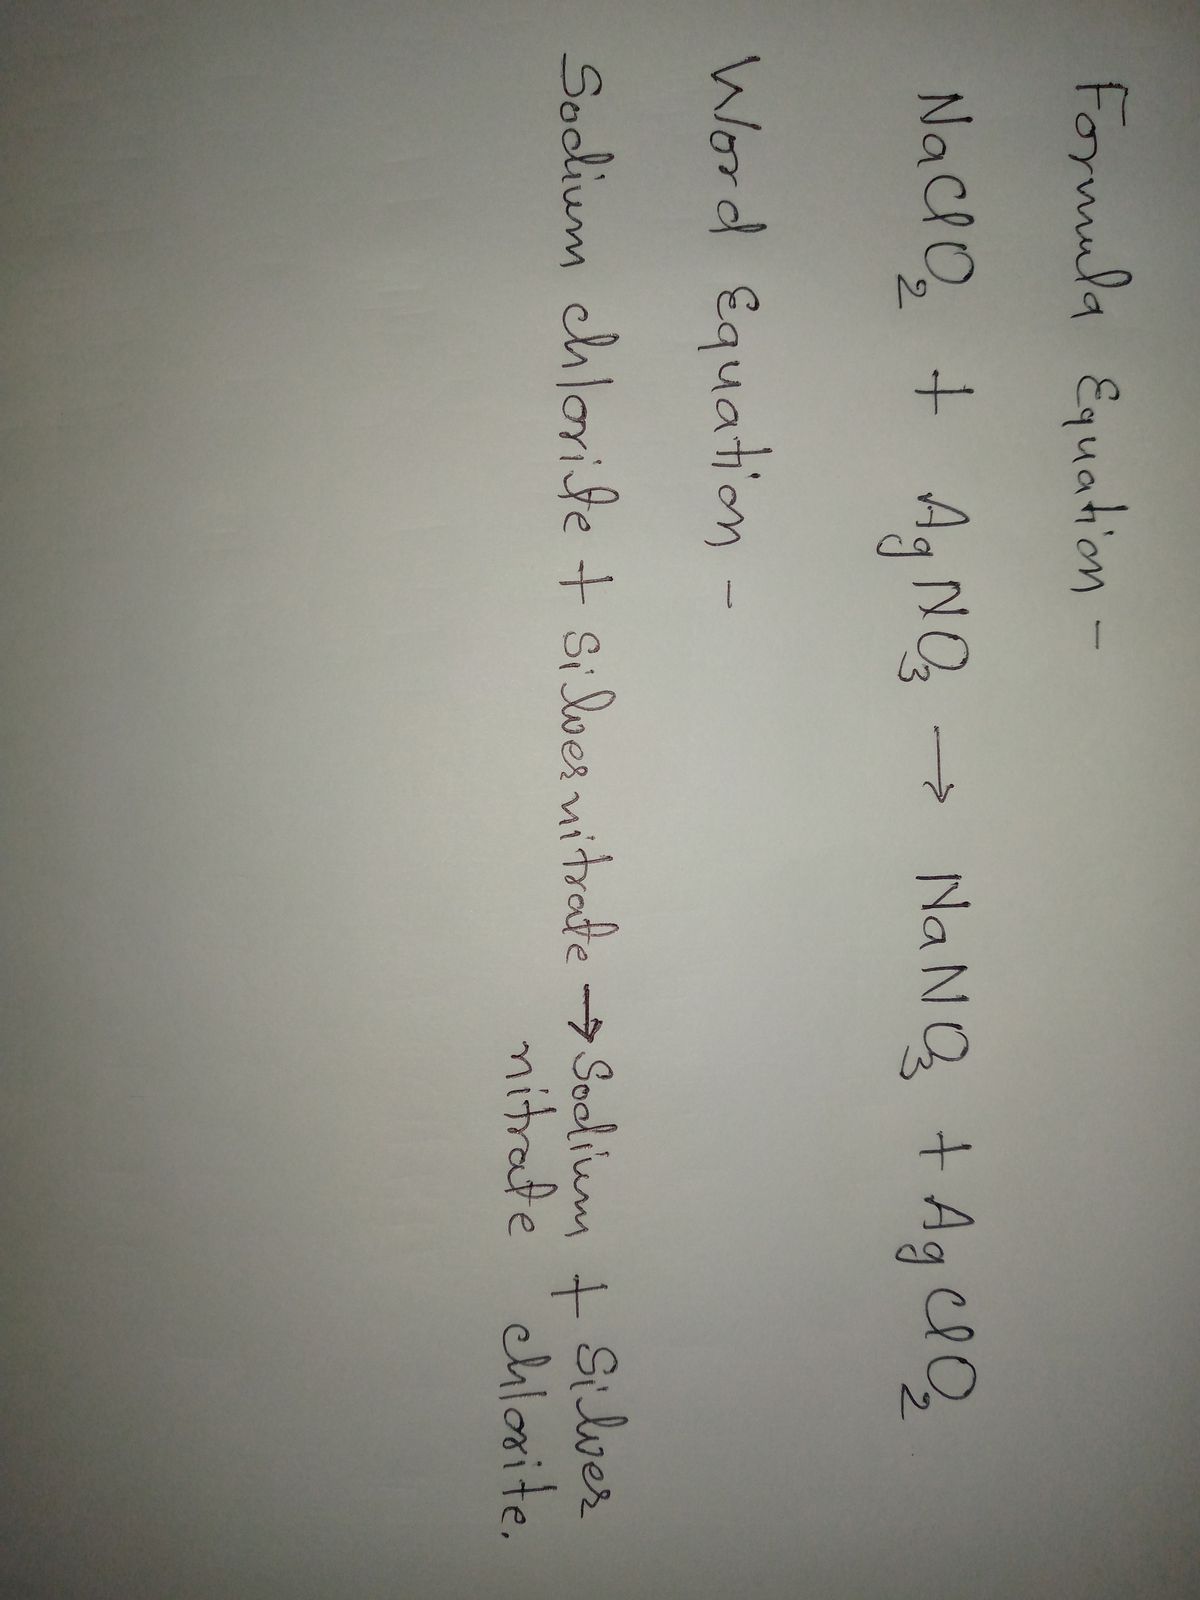 Formula Equation -
NaClO₂ + AgNO₃ → NaNO₃ + AgClO₂
Word Equation -
Sodium chlorite + Silver nitrate → Sodium + Silver
nitrate chlorite.